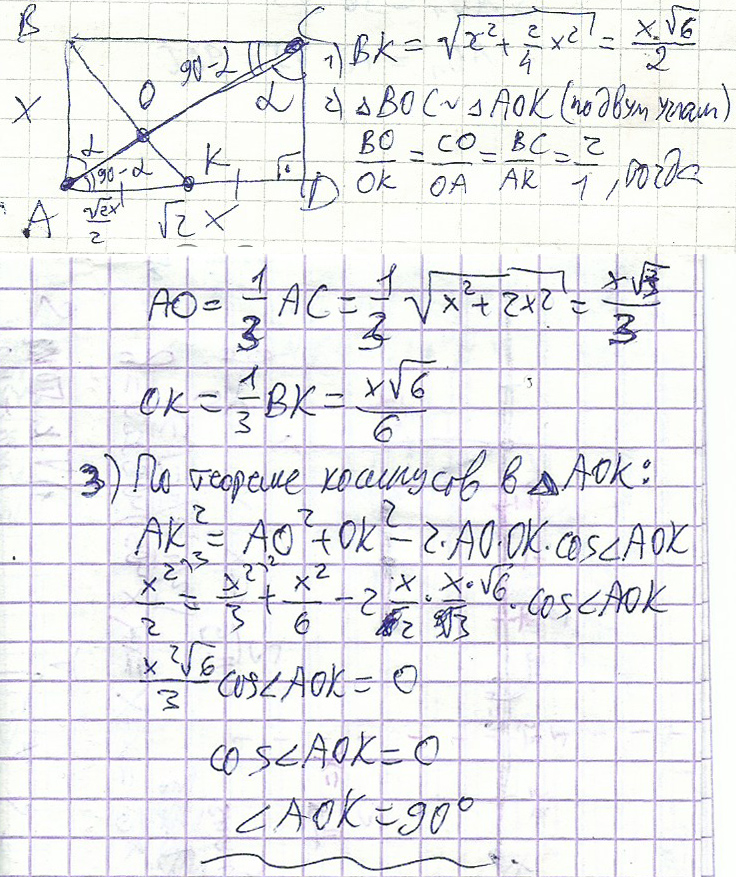 B
C
90-α
O
α
X
α
90-α
K
A
D
√2x/2
√2 X
1) BK = √(x² + 2/4 x²) = x·√6/2
2) △BOC ~ △AOK (по двум углам)
BO/OK = CO/OA = BC/AK = 2/1, тогда
AO = 1/3 AC = 1/3 √(x² + 2x²) = x√3/3
OK = 1/3 BK = x√6/6
3) По теореме косинусов в △AOK:
AK² = AO² + OK² - 2·AO·OK·cos∠AOK
x²/2 = x²/3 + x²/6 - 2 x/ · x·√6/ · cos∠AOK
x²√6/3 cos∠AOK = 0
cos∠AOK = 0
∠AOK = 90°